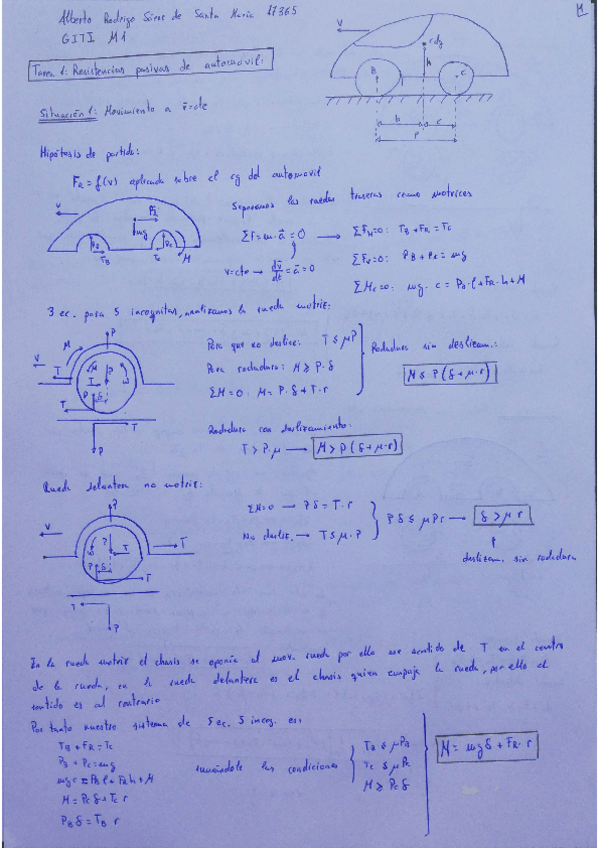 Alberto Rodrigo Sáenz de Santa María 17365
GITI M1
1
Tarea 1: Resistencias pasivas de automóvil:
Situación 1: Movimiento a v̄=cte
V
cdg
h
B
C
b
c
P
Hipótesis de partida:
F_R = f(v) aplicada sobre el cg del automóvil
Separamos las ruedas traseras como motrices
V
F_R
mg
P_B
T_B
T_C
P_C
M
ΣF=m·ā=0 → ΣF_H=0: T_B+F_R=T_C
v=cte → dv̄/dt=ā=0
ΣF_V=0: P_B+P_C=mg
ΣM_C=0: mg·c=P_B·l+F_R·h+M
3 ec. para 5 incognitas, analizamos la rueda motriz:
Para que no deslice: T≤μP
Para rodadura: M≥P·δ
ΣM=0: M=P·δ+T·r
Rodadura sin deslizam.:
M≤P(δ+μ·r)
Rodadura con deslizamiento:
T>P·μ → M>P(δ+μ·r)
Rueda delantera no motriz:
ΣM=0 → Pδ=T·r
No desliz. → T≤μ·P
Pδ≤μPr → δ>μ·r
deslizam. sin rodadura
En la rueda motriz el chasis se oponía al mov. rueda por ello ese sentido de T en el centro
de la rueda, en la rueda delantera es el chasis quien empuja la rueda, por ello el
sentido es al contrario
Por tanto nuestro sistema de 5 ec. 5 incog. es:
T_B+F_R=T_C
P_B+P_C=mg
mgc=P_B l+F_R h+M
M=P_C δ+T_C r
P_B δ=T_B r
condiciones
T_B≤μP_B
T_C≤μP_C
M≥P_C δ
M=mgδ+F_R·r